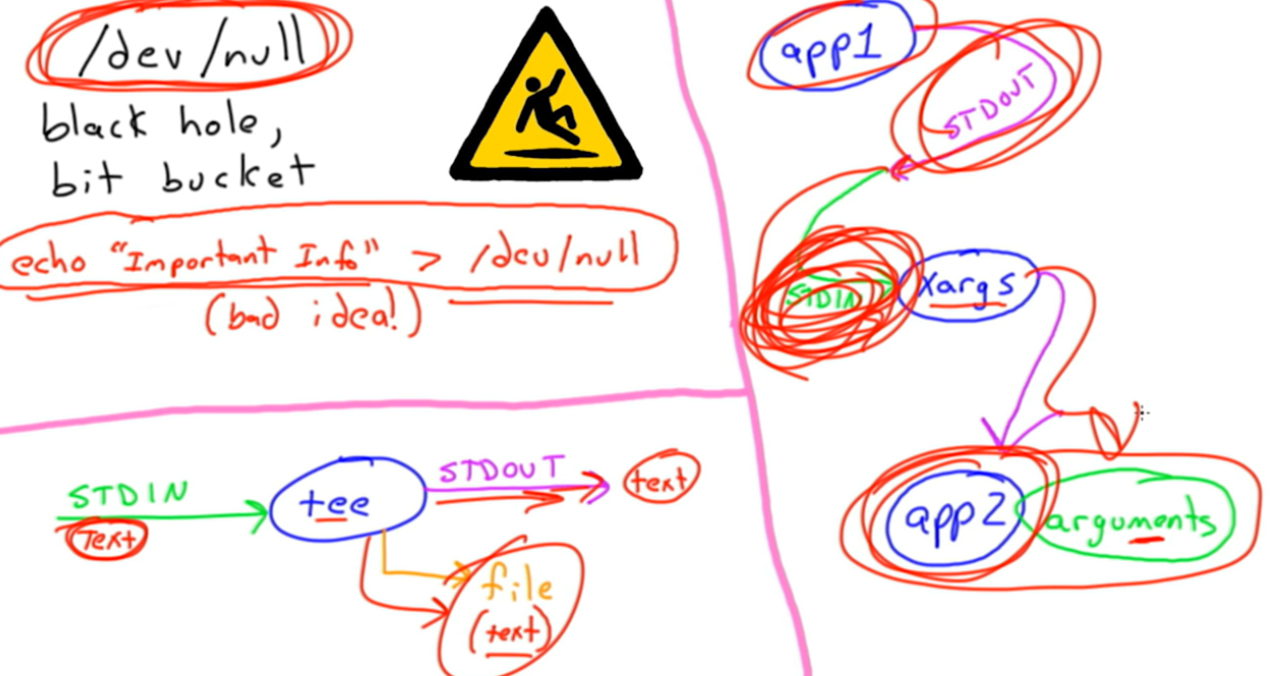 /dev/null
black hole,
bit bucket
echo "Important Info" > /dev/null
(bad idea!)
STDIN
Text
tee
STDOUT
text
file
(text)
app1
STDOUT
STDIN
xargs
app2
arguments